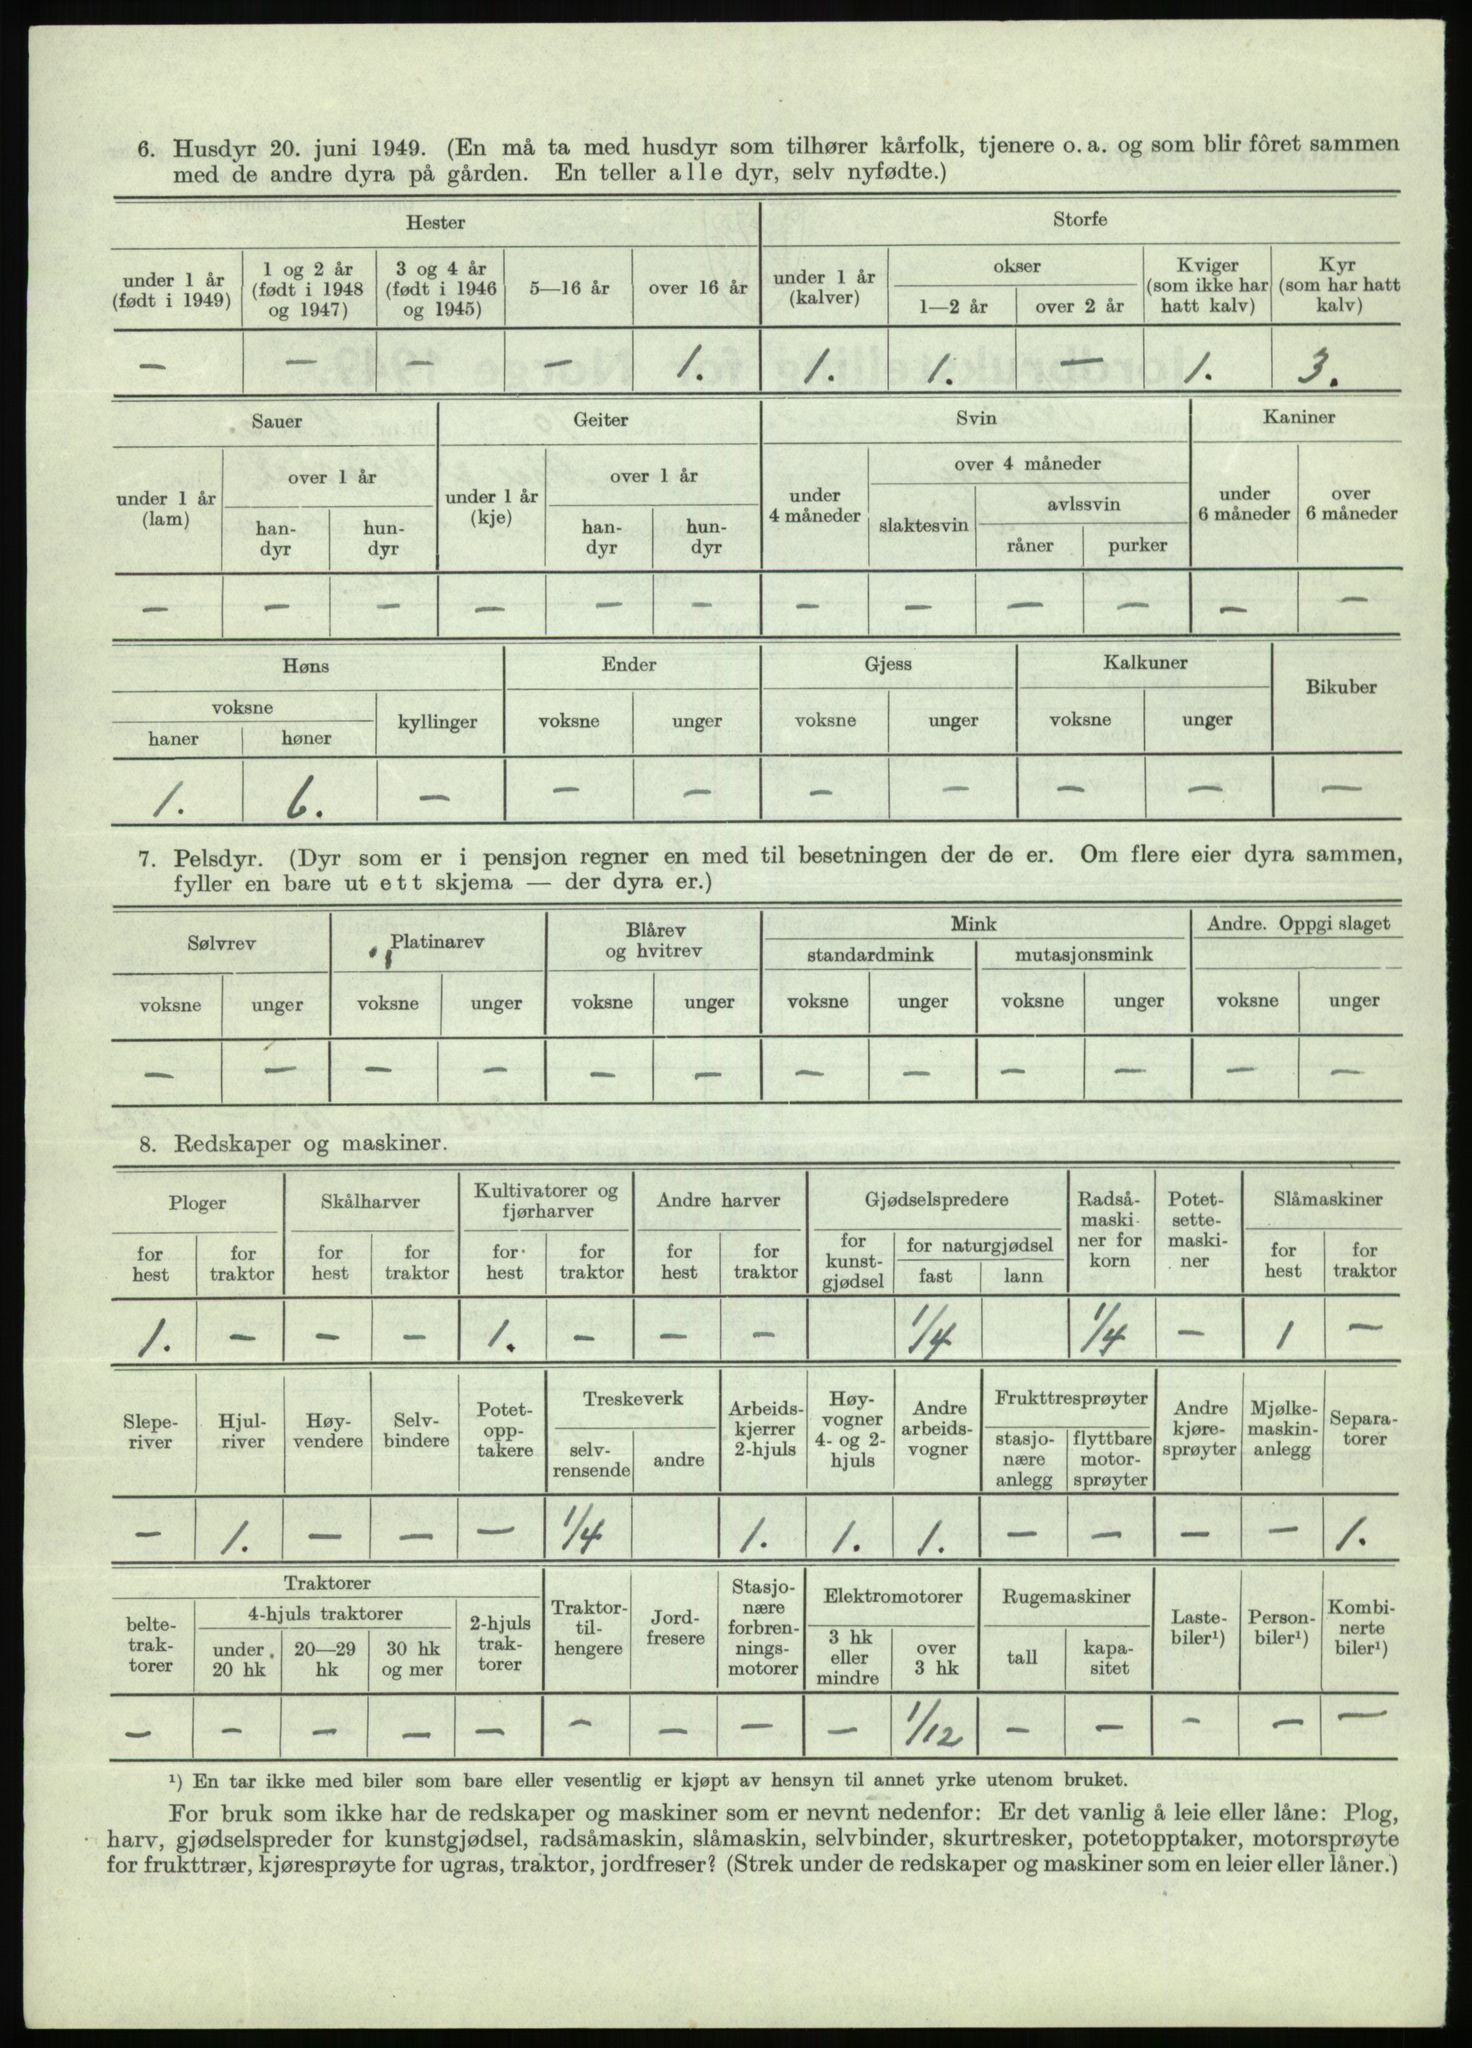 6. Husdyr 20. juni 1949. (En må ta med husdyr som tilhører kårfolk, tjenere o. a. og som blir fôret sammen
med de andre dyra på gården. En teller alle dyr, selv nyfødte.)
Hester Storfe
under 1 år (født i 1949) 1 og 2 år (født i 1948 og 1947) 3 og 4 år (født i 1946 og 1945) 5—16 år over 16 år under 1 år (kalver) okser 1—2 år over 2 år Kviger (som ikke har hatt kalv) Kyr (som har hatt kalv)
— — — — 1. 1. 1. — 1. 3.
Sauer Geiter Svin Kaniner
under 1 år (lam) over 1 år han-dyr hun-dyr under 1 år (kje) over 1 år han-dyr hun-dyr under 4 måneder over 4 måneder slaktesvin avlssvin råner purker under 6 måneder over 6 måneder
— — — — — — — — — — — —
Høns Ender Gjess Kalkuner Bikuber
voksne haner høner kyllinger voksne unger voksne unger voksne unger
1. 6. — — — — — — — —
7. Pelsdyr. (Dyr som er i pensjon regner en med til besetningen der de er. Om flere eier dyra sammen,
fyller en bare ut ett skjema — der dyra er.)
Sølvrev Platinarev Blårev og hvitrev Mink Andre. Oppgi slaget
standardmink mutasjonsmink
voksne unger voksne unger voksne unger voksne unger voksne unger voksne unger
— — — — — — — — — — — —
8. Redskaper og maskiner.
Ploger Skålharver Kultivatorer og fjørharver Andre harver Gjødselspredere Radså-maski-ner for korn Potet-sette-maski-ner Slåmaskiner
for hest for traktor for hest for traktor for hest for traktor for hest for traktor for kunst-gjødsel for naturgjødsel fast lann for hest for traktor
1. — — — 1. — — — 1/4 1/4 — 1 —
Slepe-river Hjul-river Høy-vendere Selv-bindere Potet-opp-takere Treskeverk selv-rensende andre Arbeids-kjerrer 2-hjuls Høy-vogner 4- og 2-hjuls Andre arbeids-vogner Frukttresprøyter stasjo-nære anlegg flyttbare motor-sprøyter Andre kjøre-sprøyter Mjølke-maskin-anlegg Separa-torer
— 1. — — — 1/4 1. 1. 1. — — — — 1.
Traktorer belte-trak-torer 4-hjuls traktorer under 20 hk 20—29 hk 30 hk og mer 2-hjuls trak-torer Traktor-til-hengere Jord-fresere Stasjo-nære forbren-nings-motorer Elektromotorer 3 hk eller mindre over 3 hk Rugemaskiner tall kapa-sitet Laste-biler¹) Person-biler¹) Kombi-nerte biler¹)
— — — — — — — — — 1/12 — — — — —
¹) En tar ikke med biler som bare eller vesentlig er kjøpt av hensyn til annet yrke utenom bruket.
For bruk som ikke har de redskaper og maskiner som er nevnt nedenfor: Er det vanlig å leie eller låne: Plog,
harv, gjødselspreder for kunstgjødsel, radsåmaskin, slåmaskin, selvbinder, skurtresker, potetopptaker, motorsprøyte
for frukttrær, kjøresprøyte for ugras, traktor, jordfreser? (Strek under de redskaper og maskiner som en leier eller låner.)